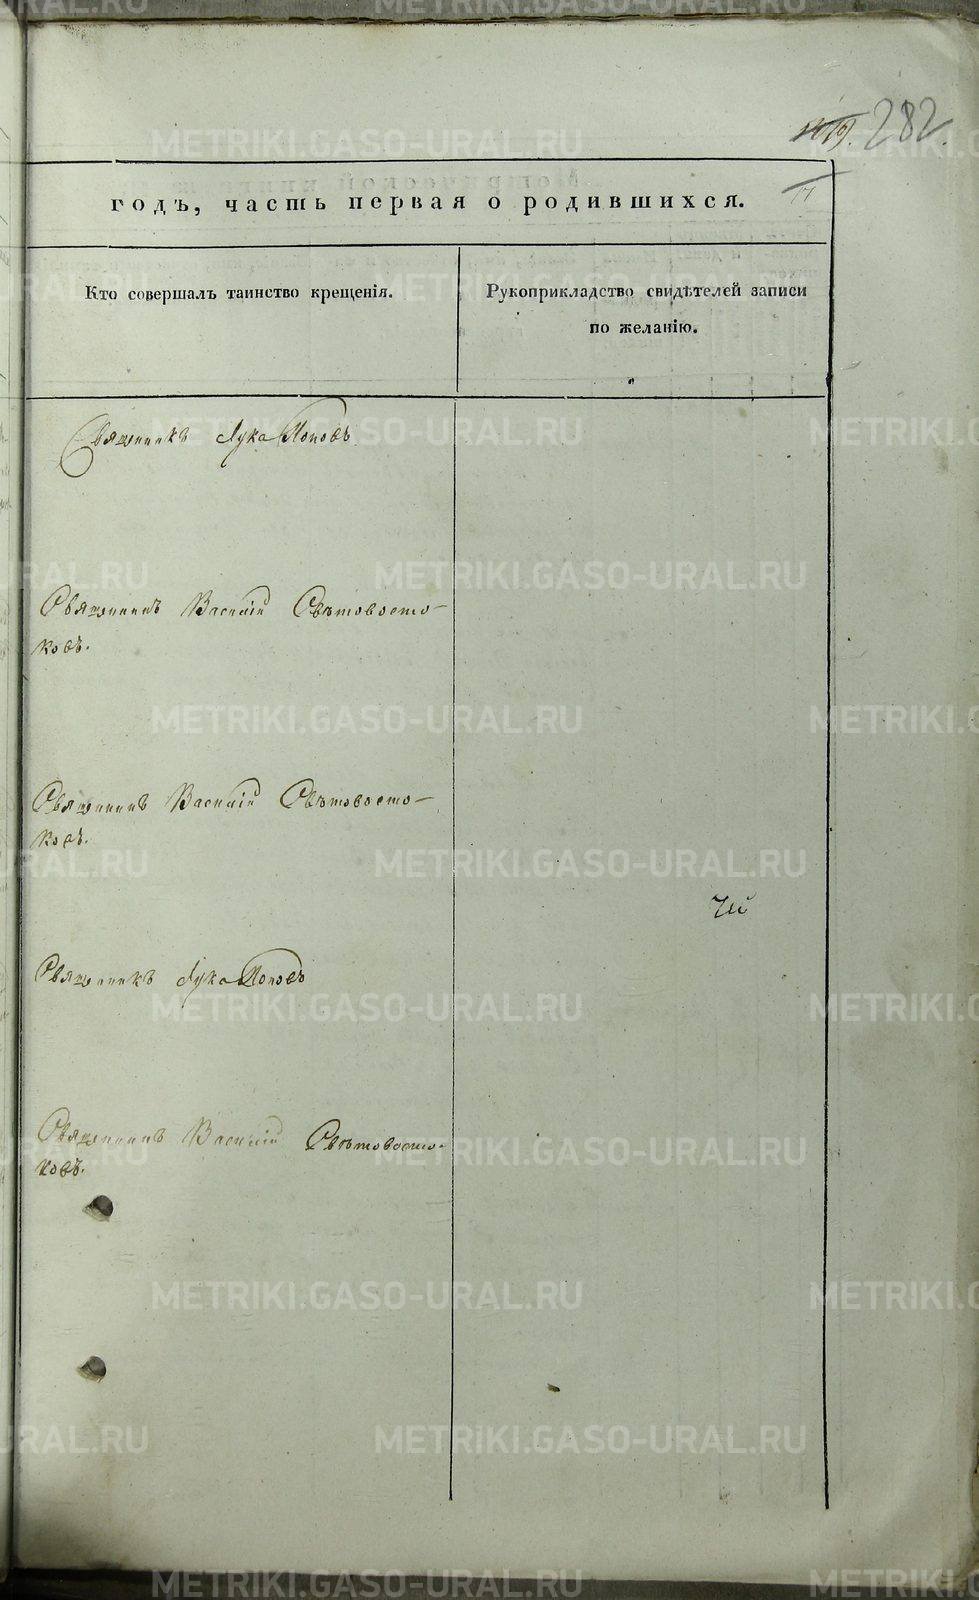 282.
годъ, часть первая о родившихся.
Кто совершалъ таинство крещенія.
Рукоприкладство свидѣтелей записи
по желанію.
Священникъ Лука Поповъ
Священникъ Василій Свѣтовосто-
ковъ.
Священникъ Василій Свѣтовосто-
ковъ.
Священникъ Лука Поповъ
Священникъ Василій Свѣтовосто-
ковъ.
METRIKI.GASO-URAL.RU